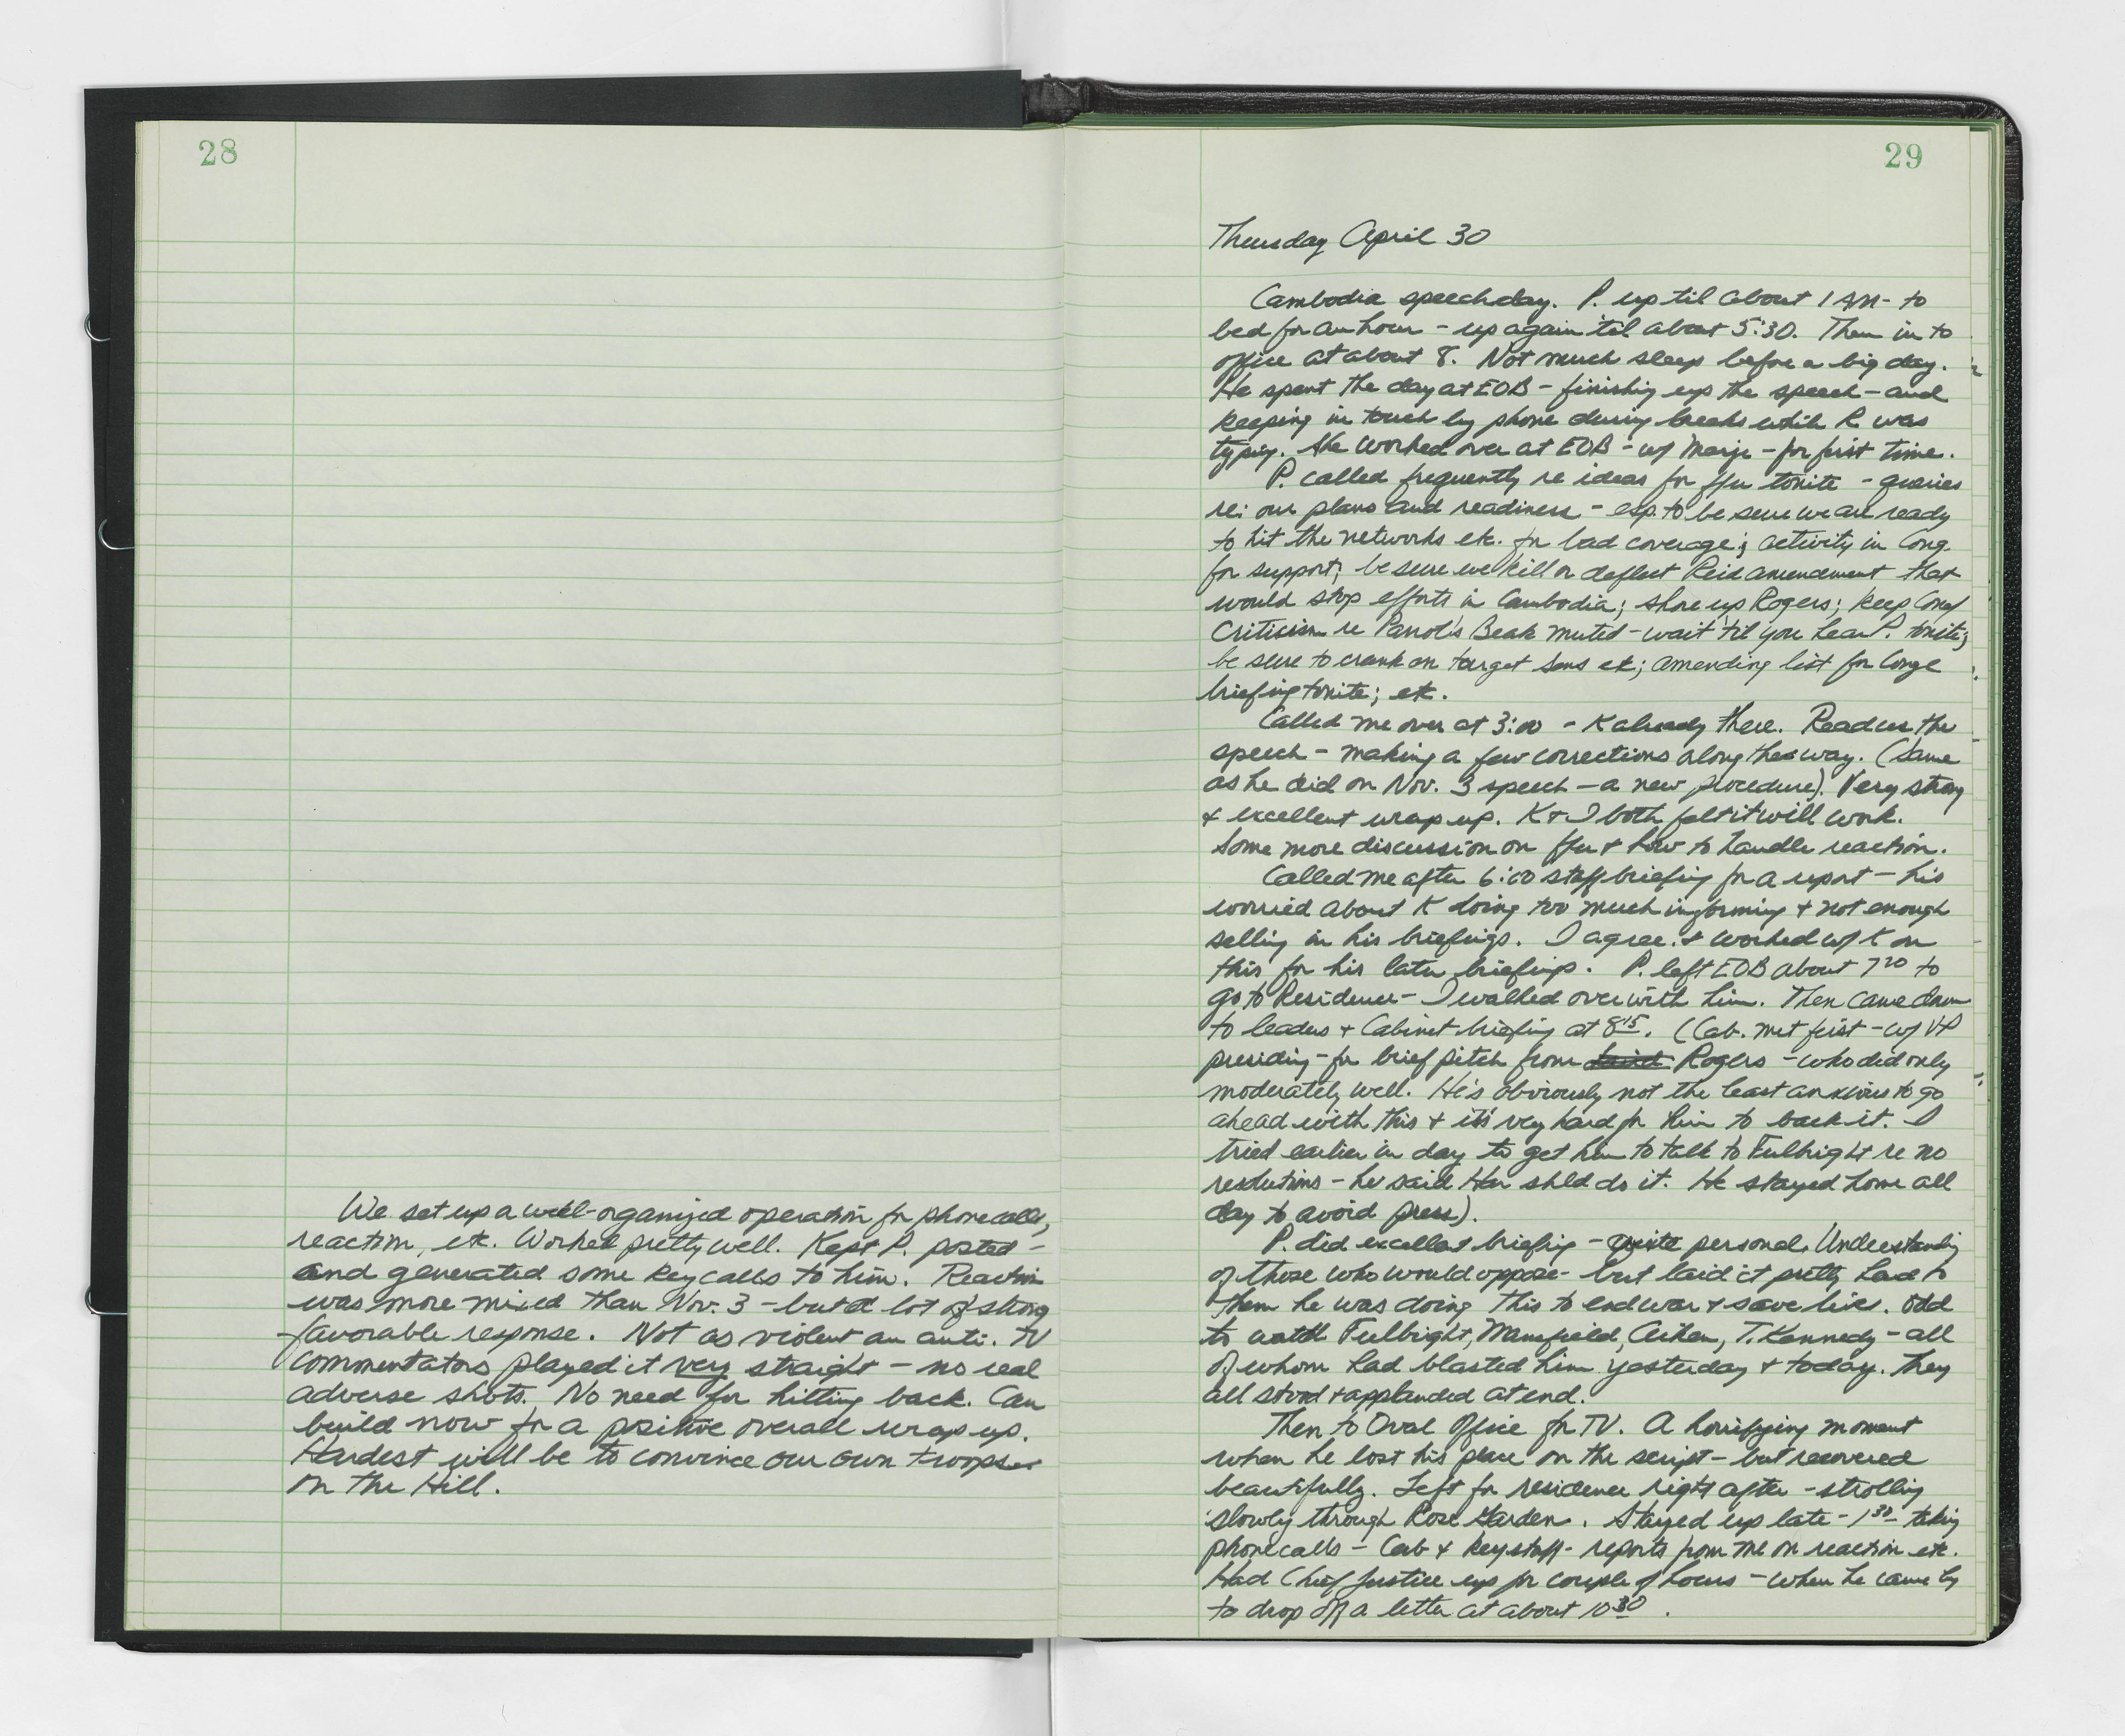 28
We set up a well-organized operation for phone calls,
reaction, etc. Worked pretty well. Kept P. posted -
and generated some key calls to him. Reaction
was more mixed than Nov. 3 - but a lot of strong
favorable response. Not as violent an anti. TV
commentators played it very straight - no real
adverse shots. No need for hitting back. Can
build now for a positive overall wrap up.
Hardest will be to convince our own troops
on the Hill.
29
Thursday April 30
Cambodia speech day. P. up til about 1 AM - to
bed for an hour - up again 'til about 5:30. Then in to
office at about 8. Not much sleep before a big day.
He spent the day at EOB - finishing up the speech - and
keeping in touch by phone during breaks while R was
typing. She worked over at EOB - w/ Marje - for first time.
P. called frequently re ideas for ffu tonite - queries
re: our plans and readiness - esp. to be sure we are ready
to hit the networks etc. for bad coverage; activity in Cong.
for support; be sure we kill or deflect Reid amendment that
would stop efforts in Cambodia; shore up Rogers; keep Congl
criticism re Parrot's Beak muted - wait 'til you hear P. tonite;
be sure to crank on target Sens etc; amending list for Congl
briefing tonite; etc.
Called me over at 3:00 - K already there. Read us the
speech - making a few corrections along the way. (Same
as he did on Nov. 3 speech - a new procedure). Very strong
& excellent wrap up. K & I both felt it will work.
Some more discussion on ffu & how to handle reaction.
Called me after 6:00 staff briefing for a report - his
worried about K doing too much informing & not enough
selling in his briefings. I agree. & worked w/ K on
this for his later briefings. P. left EOB about 7 20 to
go to Residence - I walked over with him. Then came down
to leaders & Cabinet briefing at 8 15. (Cab. met first - w/ VP
presiding - for brief pitch from Rogers - who did only
moderately well. He's obviously not the least anxious to go
ahead with this & it's very hard for him to back it. I
tried earlier in day to get him to talk to Fulbright re no
resolutions - he said Har shld do it. He stayed home all
day to avoid press).
P. did excellent briefing - quite personal. Understanding
of those who would oppose - but laid it pretty hard to
them he was doing this to end war & save lives. Odd
to watch Fulbright, Mansfield, Aiken, T. Kennedy - all
of whom had blasted him yesterday & today. They
all stood & applauded at end.
Then to Oval Office for TV. A horrifying moment
when he lost his place on the script - but recovered
beautifully. Left for residence right after - strolling
slowly through Rose Garden. Stayed up late - 1 30 - taking
phone calls - Cab & key staff - reports from me on reaction etc.
Had Chief Justice up for couple of hours - when he came by
to drop off a letter at about 10 30.